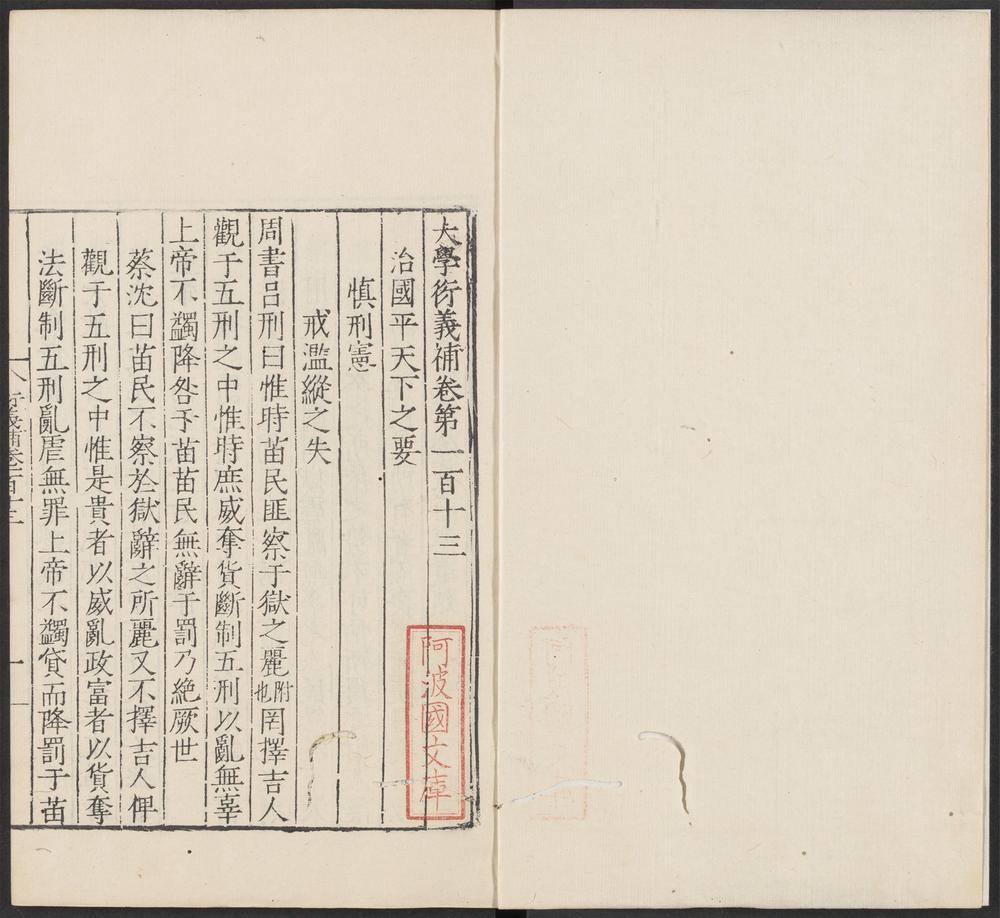 大學衍義補卷第一百十三
治國平天下之要
慎刑憲
戒濫縱之失
周書呂刑曰惟時苗民匪察于獄之麗附也罔擇吉人
觀于五刑之中惟時庶威奪貨斷制五刑以亂無辜
上帝不蠲降咎于苗苗民無辭于罰乃絶厥世
蔡沈曰苗民不察於獄辭之所麗又不擇吉人俾
觀于五刑之中惟是貴者以威亂政富者以貨奪
法斷制五刑亂虐無罪上帝不蠲貸而降罰于苗
阿波國文庫